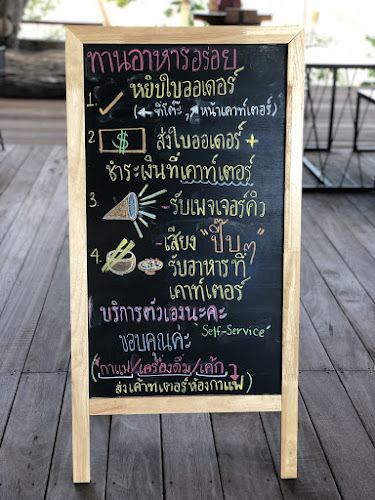 ทานอาหารอร่อย
1. ✓ หยิบใบออเดอร์
(← ที่โต๊ะ, ↗ หน้าเคาท์เตอร์)
2. $ ส่งใบออเดอร์ +
ชำระเงินที่เคาท์เตอร์
3. -รับเพจเจอร์คิว
-เสียง "ปี๊บๆ"
4. รับอาหารที่
เคาท์เตอร์
บริการตัวเองนะคะ
ขอบคุณค่ะ Self-Service
(กาแฟ/เครื่องดื่ม/เค้ก
สั่งเค้าท์เตอร์ห้องกาแฟ)